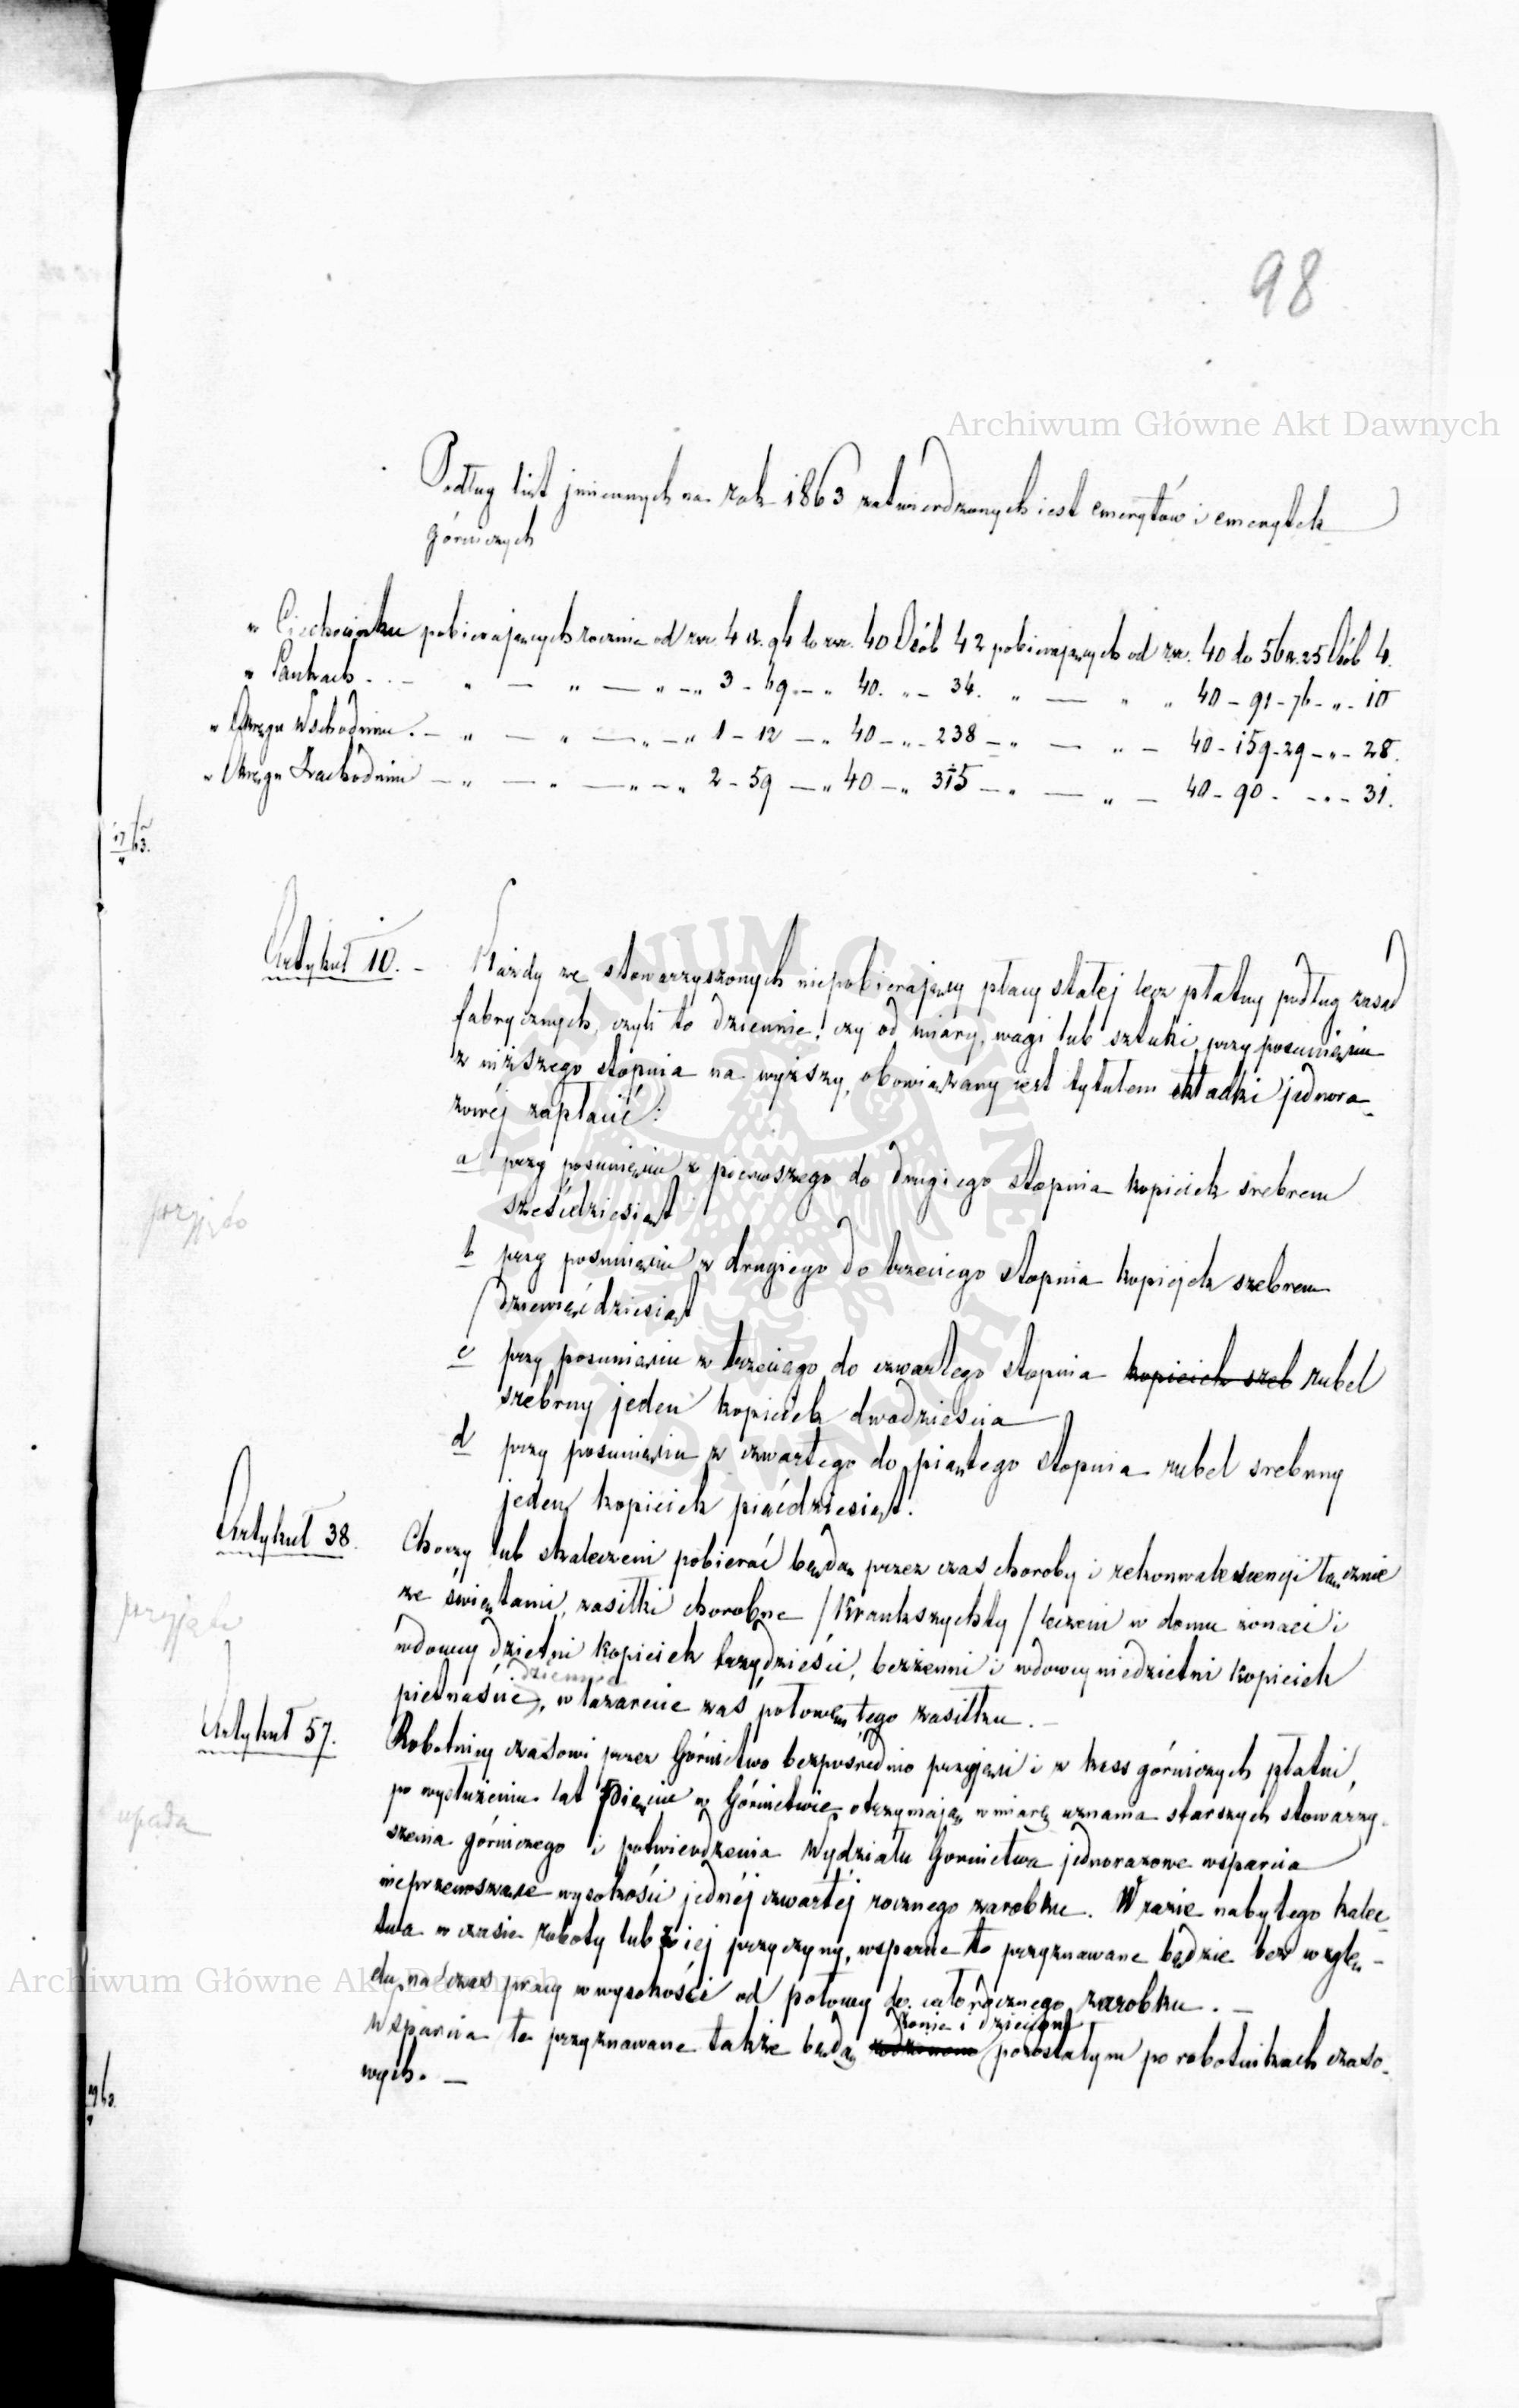 98
Archiwum Główne Akt Dawnych
Podług list jmiennych na Rok 1863 zatwierdzonych iest emerytów i emerytek
górniczych
w Ciechocinku pobierających rocznie od rsr. 4 k. 94 do rsr. 40 Osób 42 pobierających od rsr. 40 do 56 k. 25 Osób 4.
w Pankach - - - „ — „ — „ — „ 3 - 49 - „ 40. „ - 34. „ — „ „ 40 - 91 - 76 - „ - 10
w Okręgu Wschodnim. — „ — „ — „ — „ 1 - 12 — „ 40 - „ - 238 - „ — „ — 40 - 159 - 29 - „ - 28.
w Okręgu Zachodnim — „ — „ — „ — „ 2 - 59 — „ 40 - „ 315 - „ — „ — 40 - 90 - - „ - 31.
Artykuł 10. - Każdy ze stowarzyszonych niepobierający płacy stałej lecz płatny podług zasad
fabrycznych, czyli to dziennie, czy od miary, wagi lub sztuki, przy posunięciu
z niższego stopnia na wyższy, obowiązany iest tytułem składki jednora-
zowéj zapłacić:
a przy posunięciu z pierwszego do drugiego stopnia kopieiek srebrem
sześćdziesiąt
przyjęto
b przy posunięciu z drugiego do trzeciego stopnia kopiejek srebrem
dziewięćdziesiąt
c przy posunięciu z trzeciego do czwartego stopnia kopieiek sreb rubel
srebrny jeden kopieiek dwadzieścia
d przy posunięciu z czwartego do piątego stopnia rubel srebrny
jeden kopieiek pięćdziesiąt.
Artykuł 38. Chorzy lub skaleczeni pobierać będą przez czas choroby i rekonwalescencyi łącznie
ze świętami, zasiłki chorobne /Krankszychty/ leczeni w domu żonaci i
przyjęte
wdowcy dzietni kopieiek trzydzieści, bezżenni i wdowcy niedzietni kopieiek
dziennie
pietnaście, w lazarecie zaś połowę tego zasiłku. -
Artykuł 57. Robotnicy czasowi przez Górnictwo bezpośrednio przyjęci i z kass górniczych płatni,
po wysłużeniu lat Pięciu w Górnictwie otrzymają w miarę uznania starszych stowarzy-
upada
szenia górniczego i potwierdzenia Wydziału Gornictwa jednorazowe wsparcia
nieprzenoszące wysokości jednéj czwartéj rocznego zarobku. W razie nabytego kalec-
twa w czasie roboty lub z iej przyczyny, wsparcie to przyznawane będzie bez wzglę-
du na czas pracy w wysokości od połowy do całorocznego zarobku. -
Archiwum Główne Akt Dawnych
żonie i dzieciom
Wsparcia te przyznawane także będą pozostałym po robotnikach czaso-
wych. -